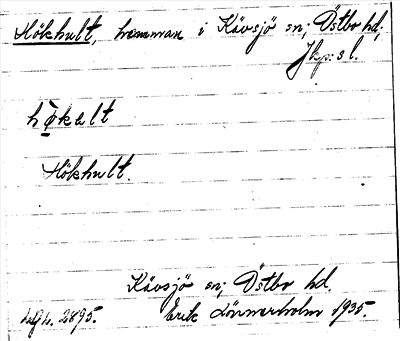 Hökhult, hemman i Kävsjö sn; Östbo hd;
Jkp:s l.
hø̀kɐlt
Hökhult.
Kävsjö sn; Östbo hd.
2895. Erik Lönnerholm 1935.